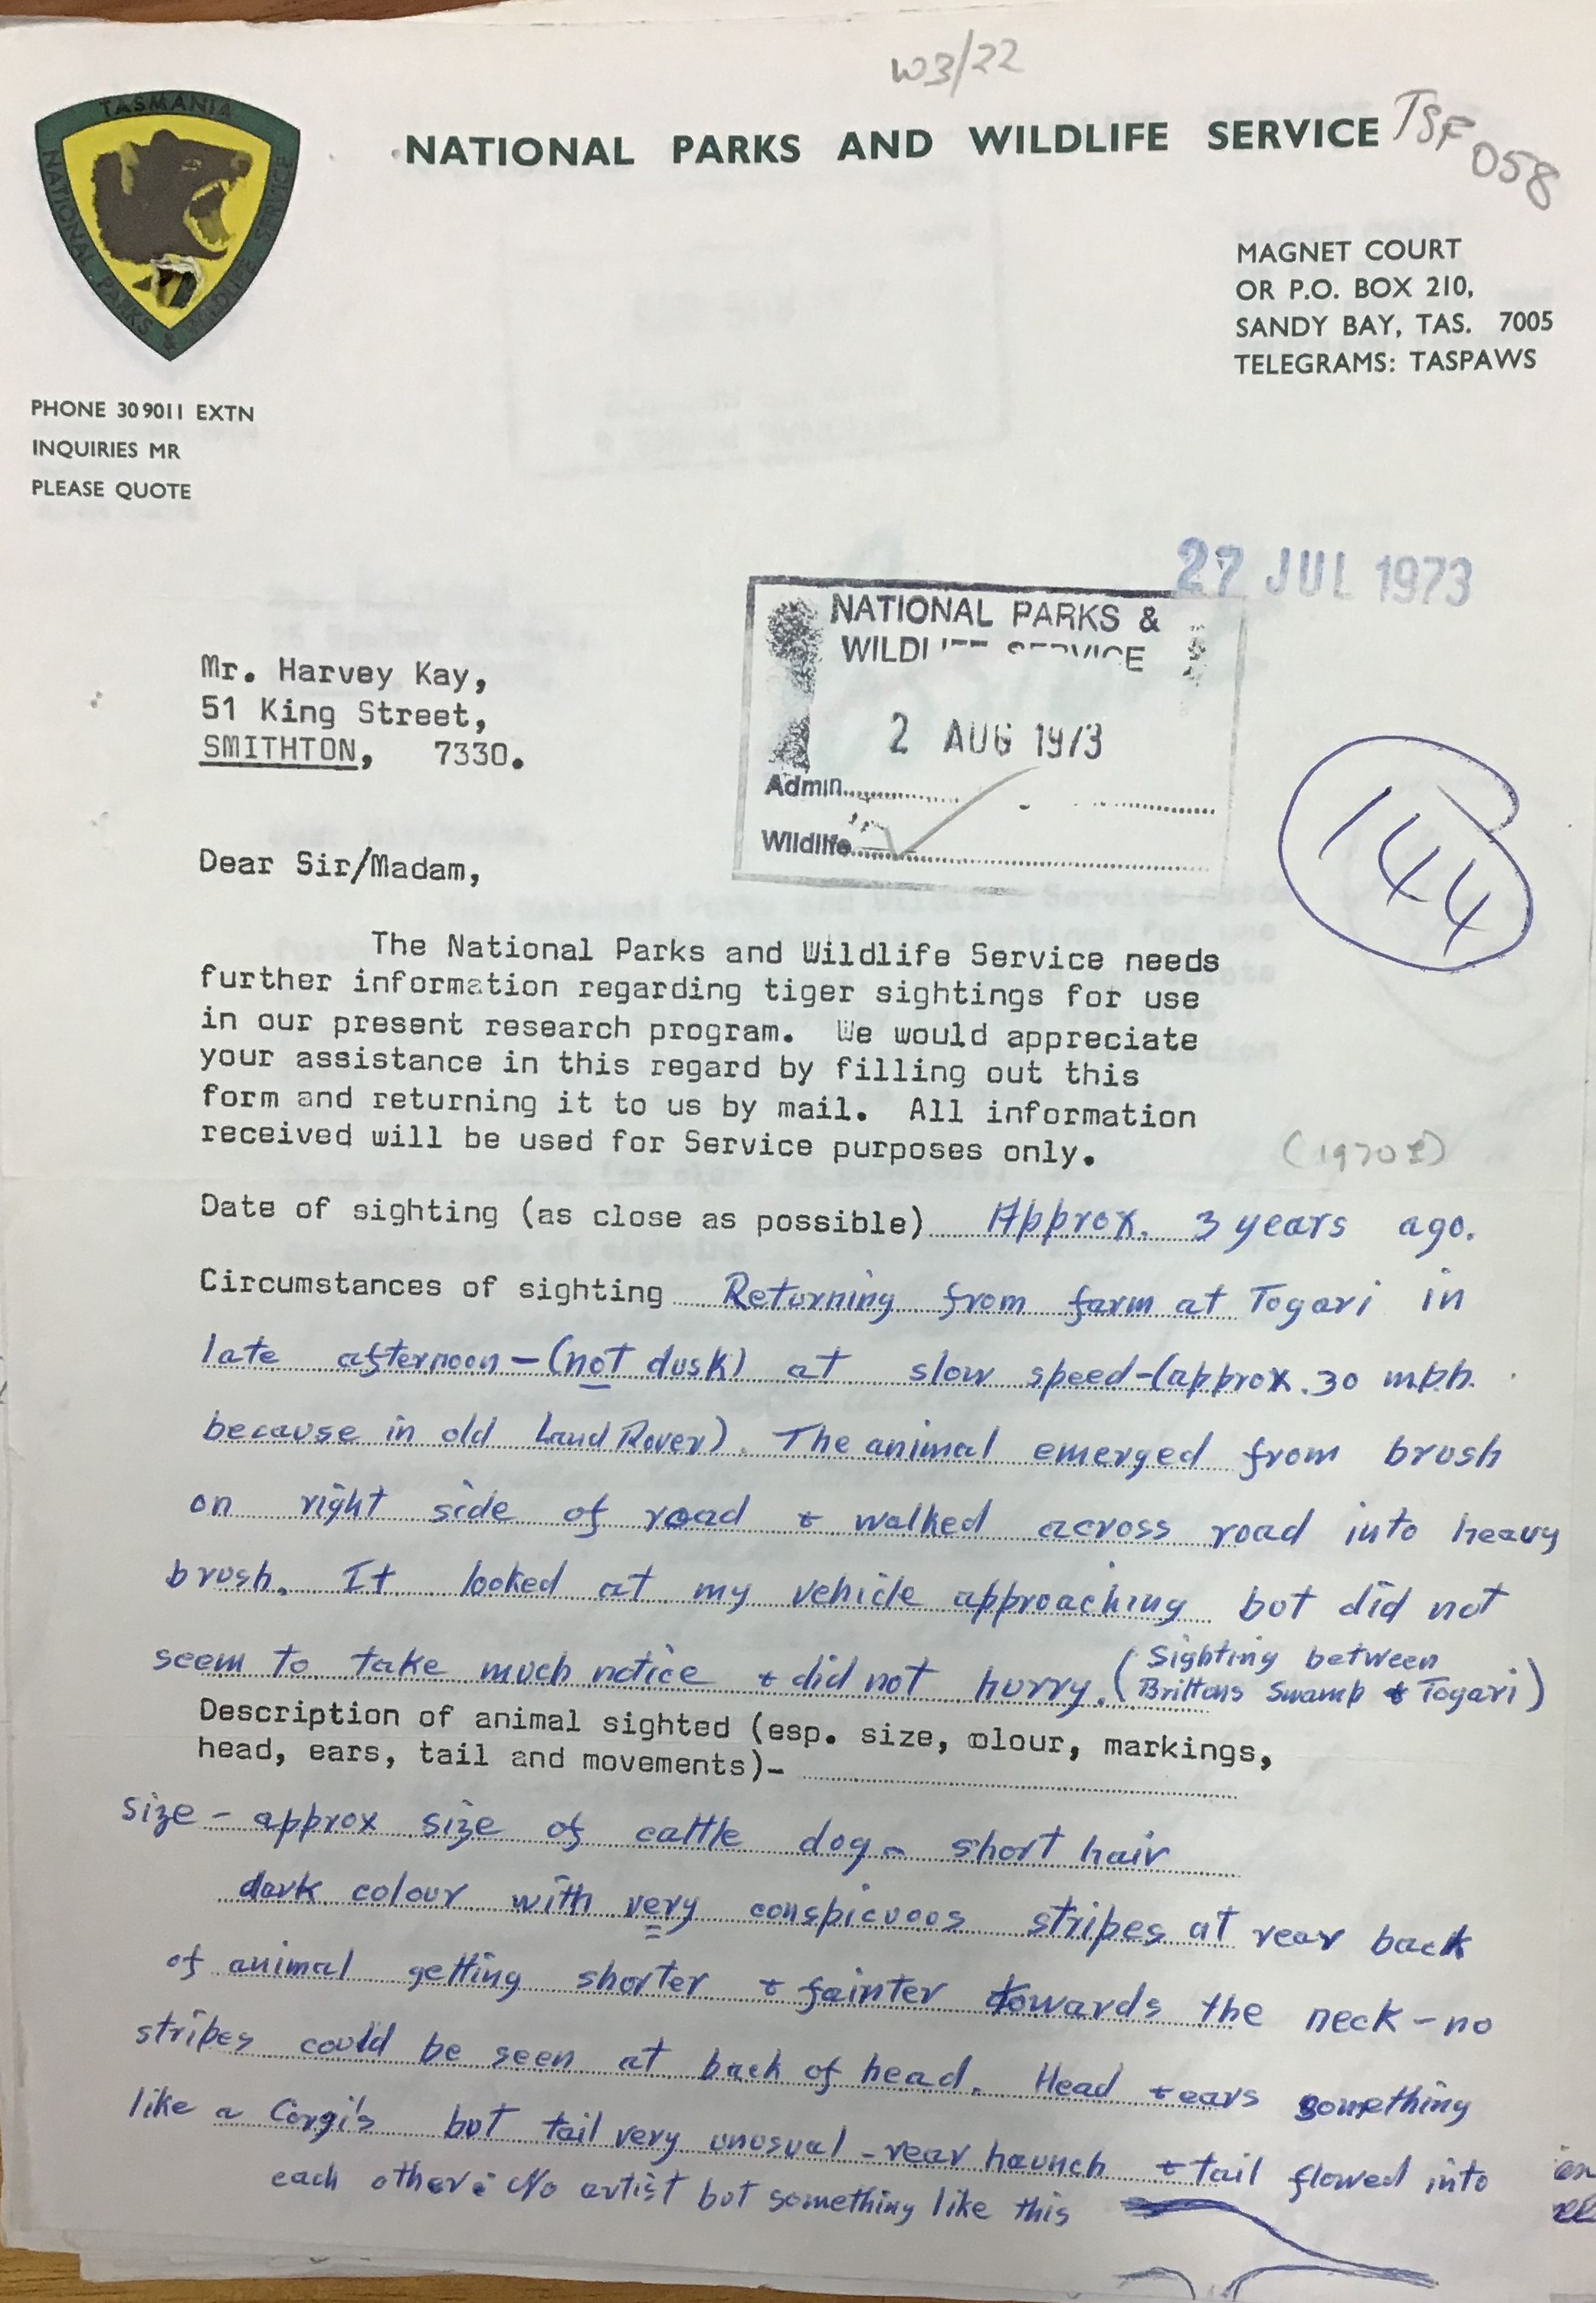 W3/22
TSF 058
TASMANIA
NATIONAL PARKS & WILDLIFE SERVICE
NATIONAL PARKS AND WILDLIFE SERVICE
MAGNET COURT
OR P.O. BOX 210,
SANDY BAY, TAS. 7005
TELEGRAMS: TASPAWS
PHONE 30 9011 EXTN
INQUIRIES MR
PLEASE QUOTE
27 JUL 1973
NATIONAL PARKS &
WILDLIFE SERVICE
2 AUG 1973
Admin.
Wildlife
144
Mr. Harvey Kay,
51 King Street,
SMITHTON, 7330.
Dear Sir/Madam,
The National Parks and Wildlife Service needs
further information regarding tiger sightings for use
in our present research program. We would appreciate
your assistance in this regard by filling out this
form and returning it to us by mail. All information
received will be used for Service purposes only.
(1970±)
Date of sighting (as close as possible) Approx. 3 years ago.
Circumstances of sighting Returning from farm at Togari in
late afternoon - (not dusk) at slow speed - (approx. 30 m.p.h.
because in old Land Rover). The animal emerged from brush
on right side of road & walked across road into heavy
brush. It looked at my vehicle approaching but did not
seem to take much notice & did not hurry. (Sighting between
Brittons Swamp & Togari)
Description of animal sighted (esp. size, olour, markings,
head, ears, tail and movements)-
size - approx size of cattle dog - short hair
dark colour with very conspicuoos stripes at rear back
of animal getting shorter & fainter towards the neck - no
stripes could be seen at back of head. Head & ears something
like a Corgi's but tail very unusual - rear haunch & tail flowed into
each other: No artist but something like this